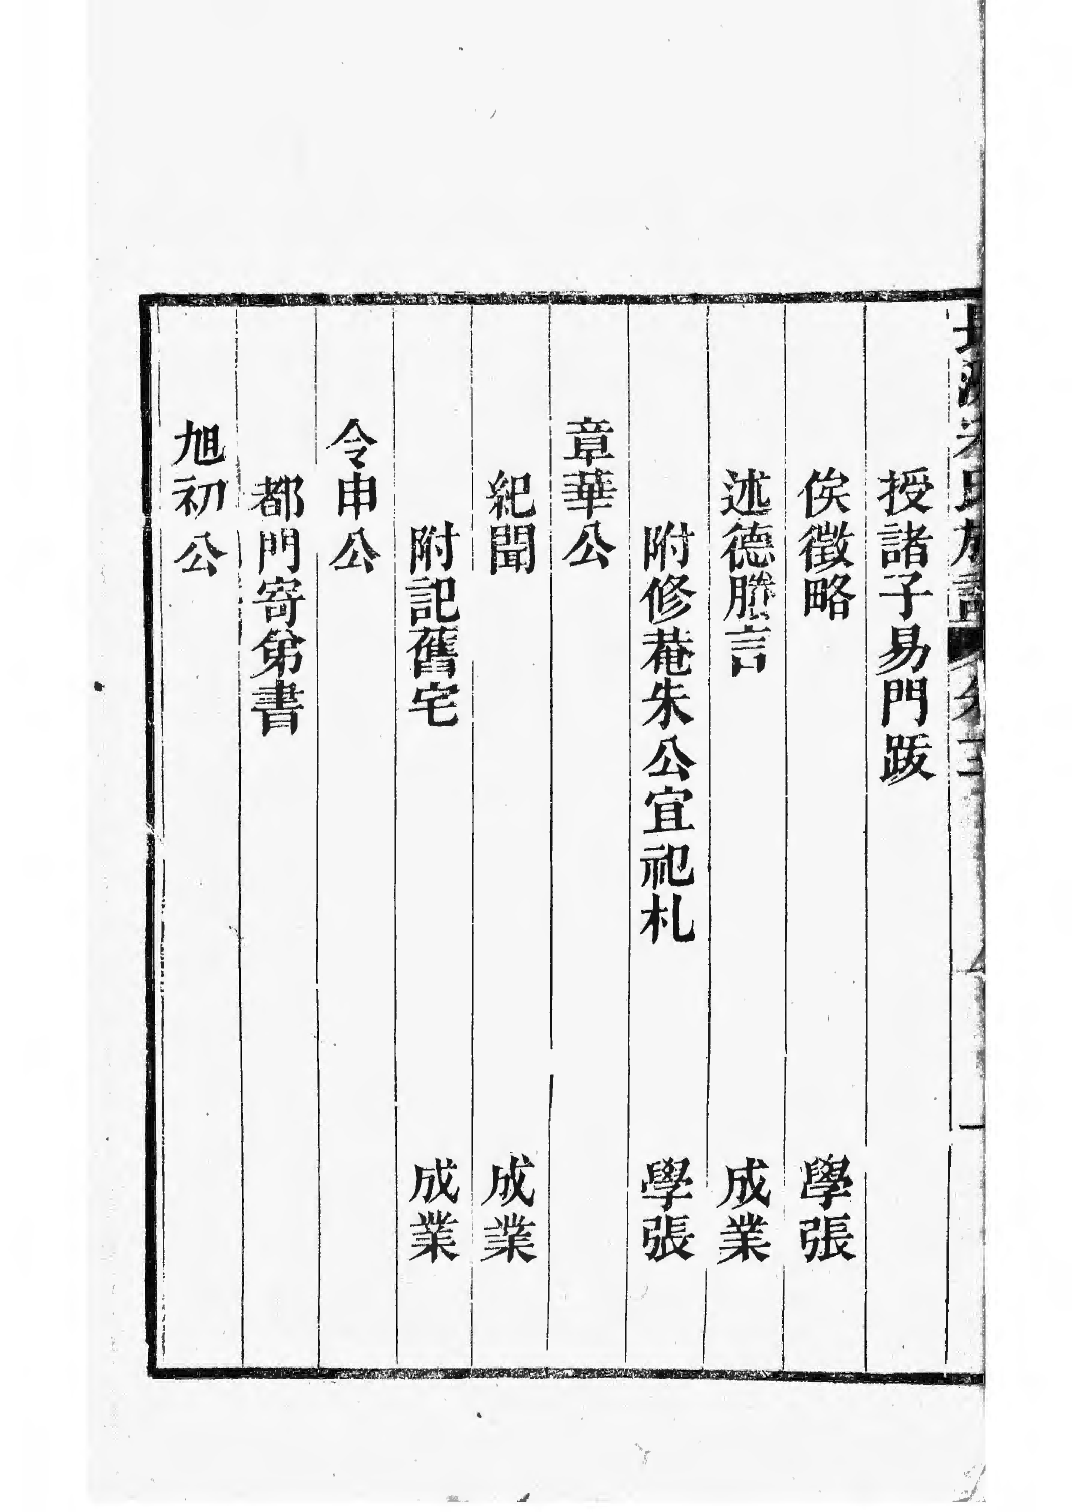 授諸子易門跋
俟徵略 學張
述德賸言 成業
附修菴朱公宜祀札 學張
章華公
紀聞 成業
附記舊宅 成業
令申公
都門寄弟書
旭初公